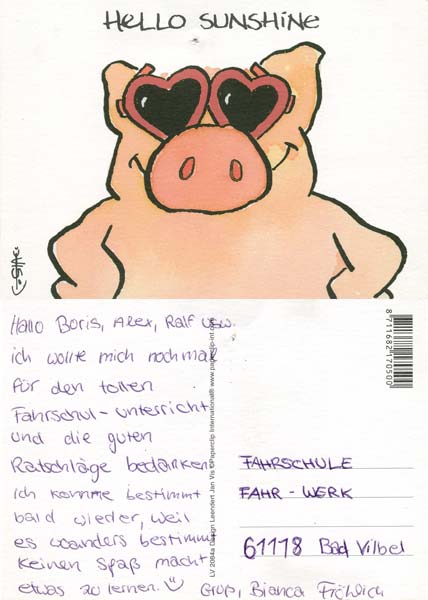 HELLO SUNSHINE
Hallo Boris, Alex, Ralf usw.
ich wollte mich nochmal
für den tollen
Fahrschul-unterricht
und die guten
Ratschläge bedanken.
Ich komme bestimmt
bald wieder, weil
es woanders bestimmt
keinen Spaß macht
etwas zu lernen.
Gruß, Bianca Fröhlich
LV 2084a Design Leendert Jan Vis ©Paperclip International® www.paperclip-int.com
8711682170500
FAHRSCHULE
FAHR-WERK
61118 Bad Vilbel